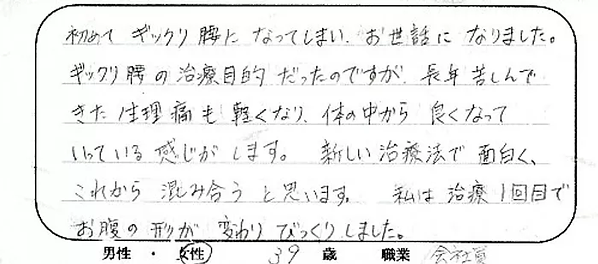 初めて ギックリ腰に なってしまい、お世話に なりました。
ギックリ腰の治療目的 だったのですが、長年苦しんで
きた生理痛も 軽くなり、体の中から 良くなって
いっている 感じが します。 新しい治療法で 面白く、
これから 混み合う と思います。 私は治療1回目で
お腹の 形が 変わり びっくりしました。
男性 ・ 女性 39 歳 職業 会社員